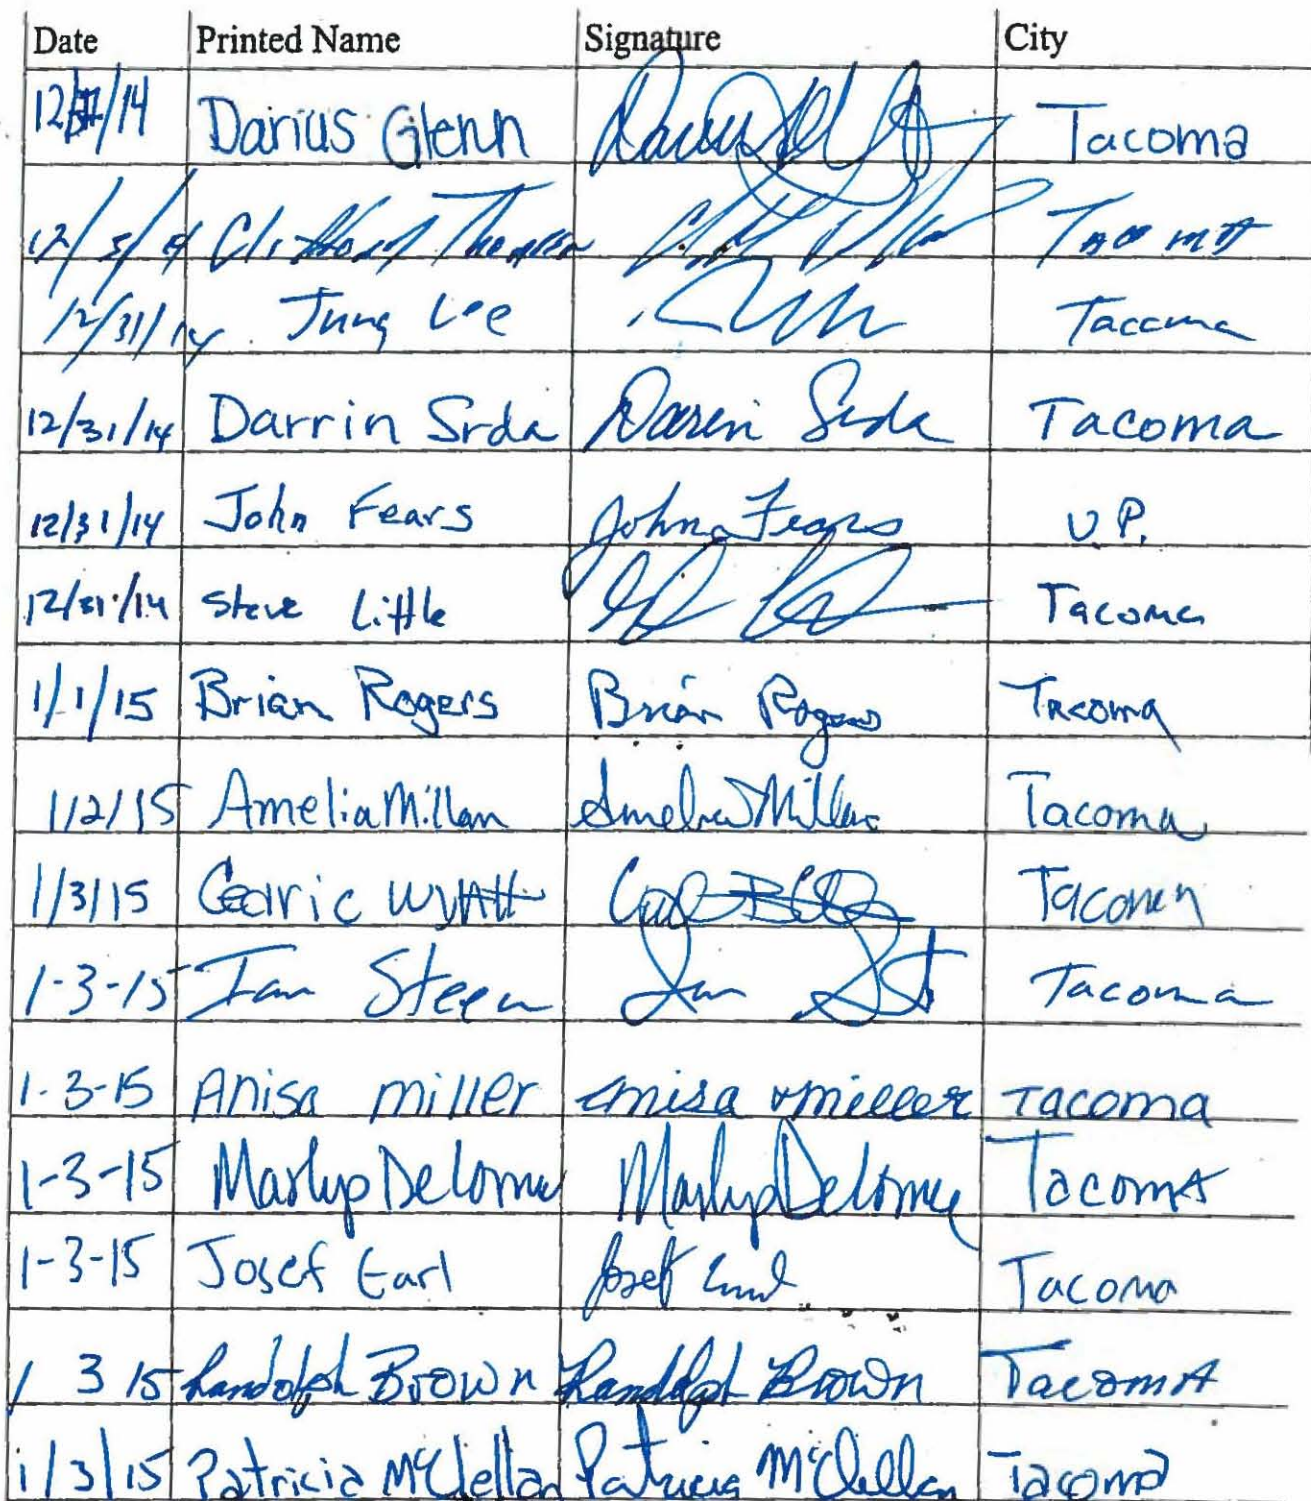 Date Printed Name Signature City
12/31/14 Darius Glenn Tacoma
12/3/14 Clifford Tacoma
12/31/14 Jung Lee Tacoma
12/31/14 Darrin Srda Darrin Srda Tacoma
12/31/14 John Fears John Fears U.P.
12/31/14 Steve Little Tacoma
1/1/15 Brian Rogers Brian Rogers Tacoma
1/2/15 Amelia Millan Amelia Millan Tacoma
1/3/15 Cedric Wyatt Tacoma
1-3-15 Ian Steen Ian Tacoma
1-3-15 Anisa miller Anisa miller Tacoma
1-3-15 Tacoma
1-3-15 Josef Earl Josef Earl Tacoma
1 3 15 Randolph Brown Randolph Brown Tacoma
1/3/15 Patricia McClellan Patricia McClellan Tacoma